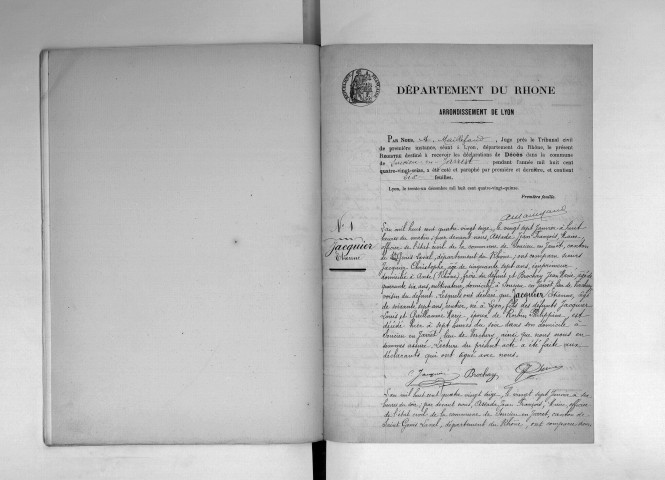 DÉPARTEMENT DU RHONE
ARRONDISSEMENT DE LYON
PAR NOUS, A. Maillefaud, Juge près le Tribunal civil
de première instance, séant à Lyon, département du Rhône, le présent
REGISTRE destiné à recevoir les déclarations de Décès dans la commune
de Soucieu-en-Jarrest pendant l'année mil huit cent
quatre-vingt-seize, a été coté et paraphé par première et dernière, et contient
feuilles.
Lyon, le trente-un décembre mil huit cent quatre-vingt-quinze.
Première feuille.
N° 1
Jacquier
Etienne
L'an mil huit cent quatre vingt seize, le vingt sept janvier à huit
heures du matin, par devant nous, Assada Jean François, Maire,
officier de l'état civil de la commune de Soucieu en Jarret, canton
de St Genis Laval, département du Rhône; ont comparu sieurs
Jacquier Christophe, âgé de cinquante sept ans, imprimeur
domicilié à (Rhône), frère du défunt et Brochay Jean Marie, âgé de
quarante six ans, cultivateur, domicilié à Soucieu en Jarret, lieu de Verchery
voisin du défunt. Lesquels ont déclaré que Jacquier Etienne, âgé
de soixante sept ans, rentier, né à Lyon, fils des défunts Jacquier
Louis et Guillaume Marie, époux de Philippine, est
décédé hier à sept heures du soir dans son domicile à
Soucieu en Jarret, lieu de Verchery, ainsi que nous nous en
sommes assuré. Lecture du présent acte a été faite aux
déclarants qui ont signé avec nous.
Jacquier Brochay
L'an mil huit cent quatre vingt seize, le vingt sept janvier à
heures du soir, par devant nous, Assada Jean François, Maire, officier
de l'état civil de la commune de Soucieu en Jarret, canton de
Saint Genis Laval, département du Rhône, ont comparu sieurs